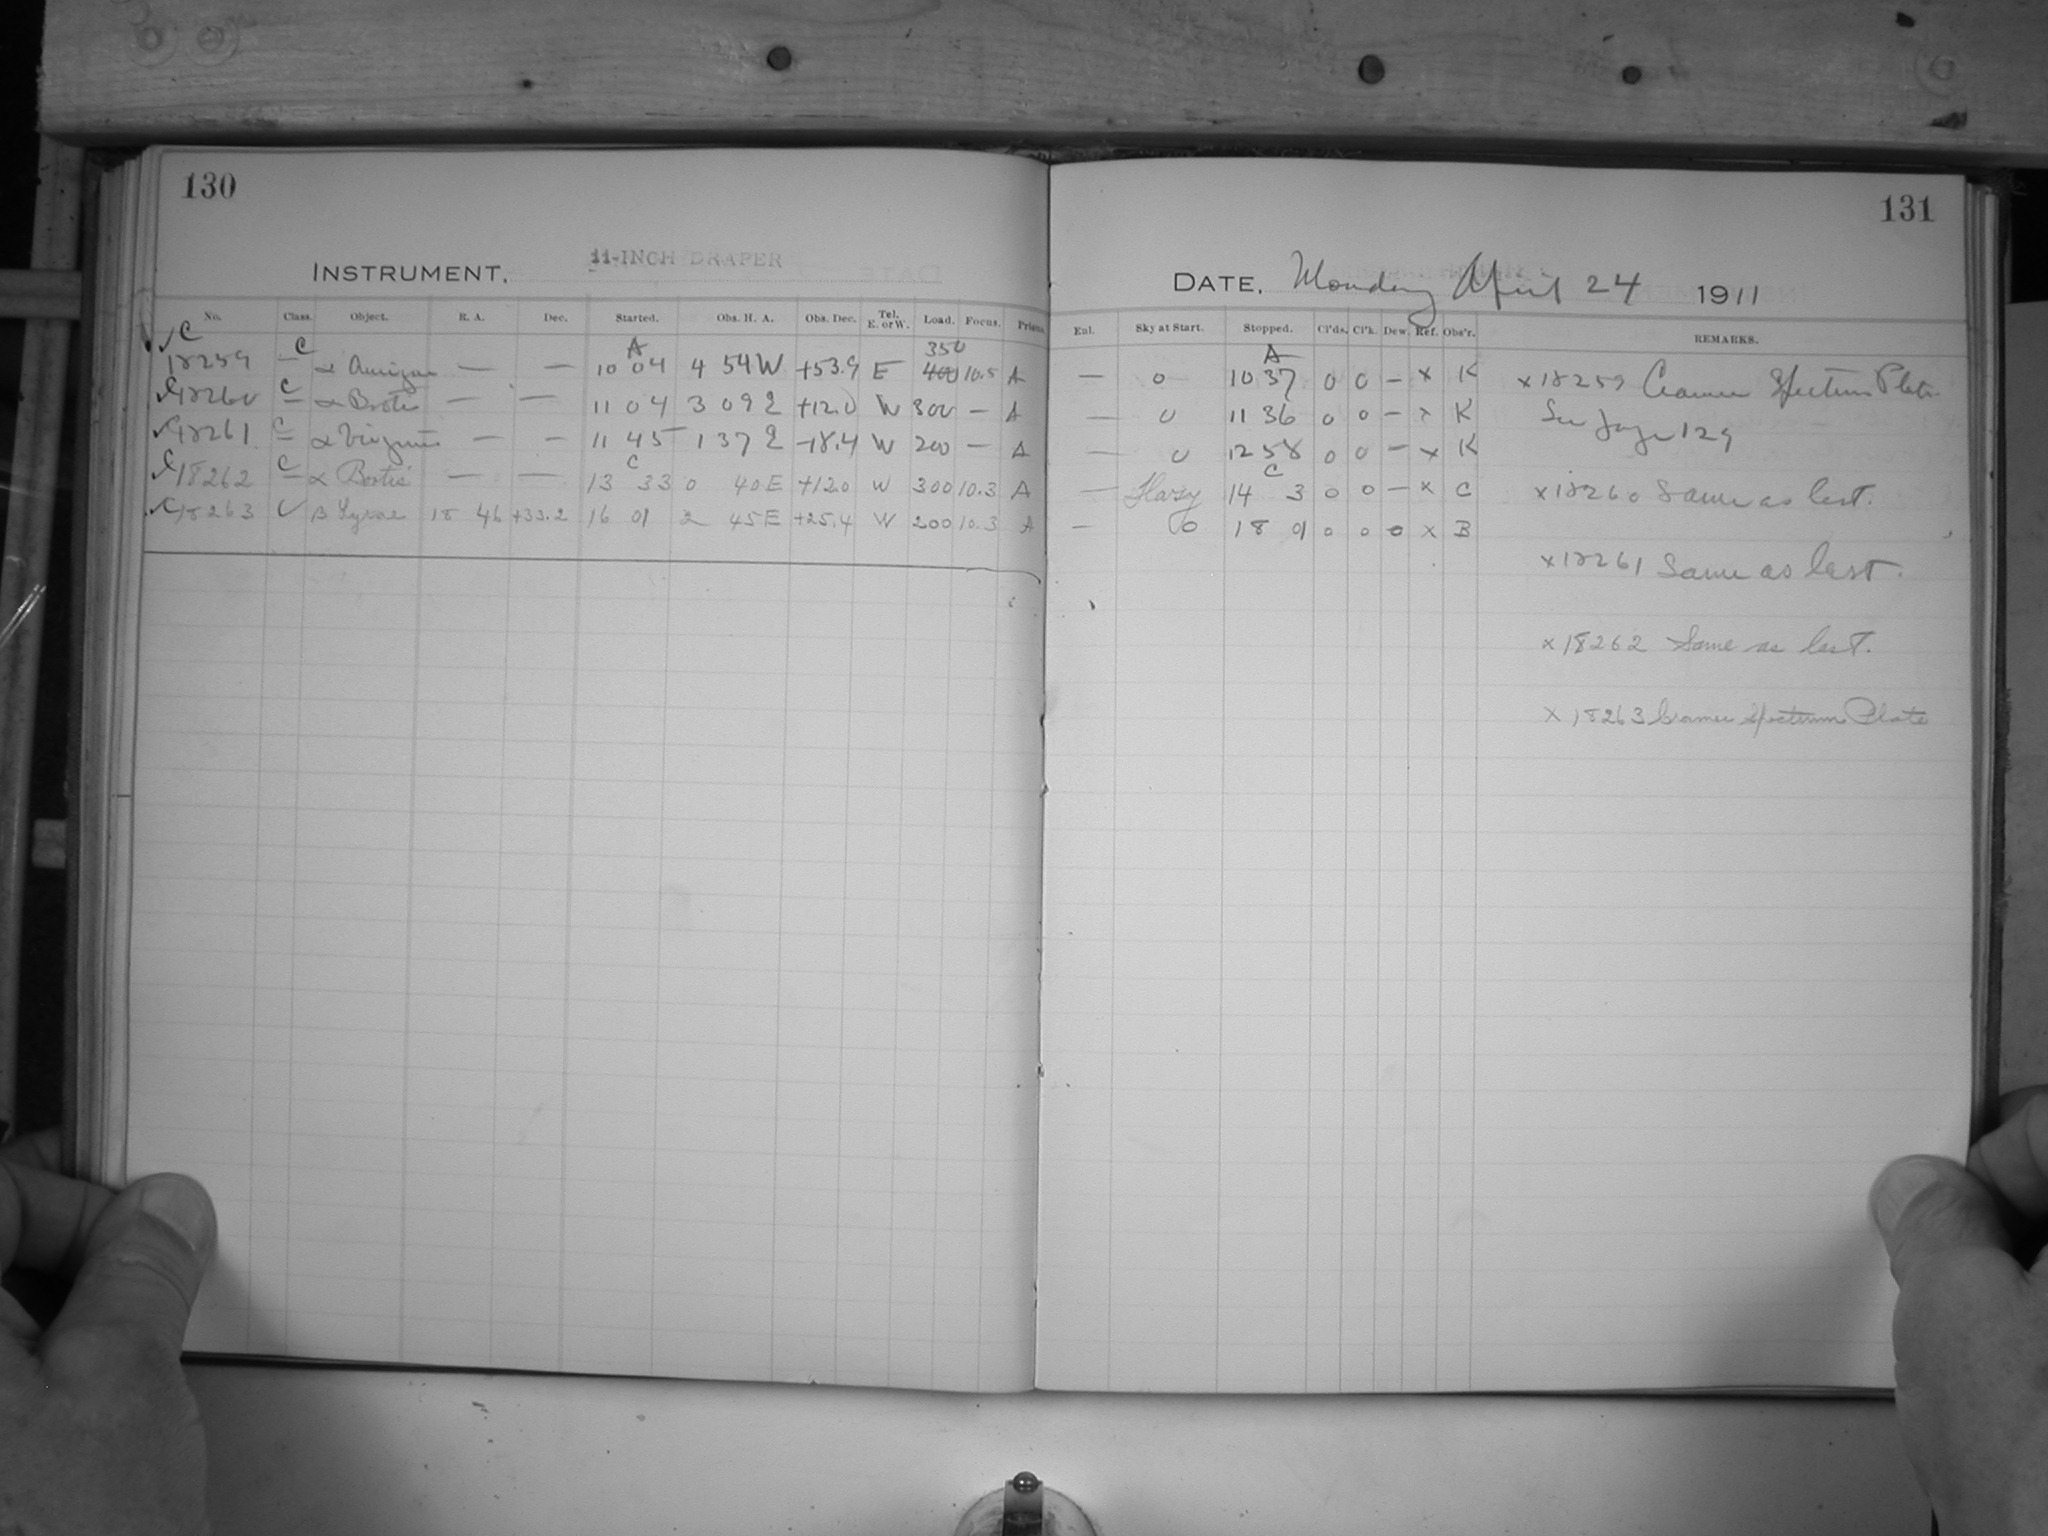 130
INSTRUMENT. 11-INCH DRAPER
No. Class. Object. R. A. Dec. Started. Obs. H. A. Obs. Dec. Tel. E. or W. Load. Focus. Prisms.
C
C A 350
18259 α Aurigae — — 10 04 4 54 W +53.9 E 400 10.5 A
C18260 C α Bootis — — 11 04 3 09 E +12.0 W 300 — A
C18261 C α Virginis — — 11 45 1 37 E -18.4 W 200 — A
C
C18262 C α Bootis — — 13 33 0 40 E +12.0 W 300 10.3 A
C18263 C β Lyrae 18 46 +33.2 16 01 2 45 E +25.4 W 200 10.3 A
131
DATE. Monday April 24 1911
Enl. Sky at Start. Stopped. Cl'ds. Cl'k. Dew. Ref. Obs'r. REMARKS.
A
— 0 10 37 0 0 — x K x18259 Cramer Spectrum Plate
— 0 11 36 0 0 — x K See page 129
— 0 12 58 0 0 — x K
C
— Hazy 14 3 0 0 — x C x18260 Same as last.
— 0 18 01 0 0 0 x B
x18261 Same as last.
x18262 Same as last.
x18263 Cramer Spectrum Plate